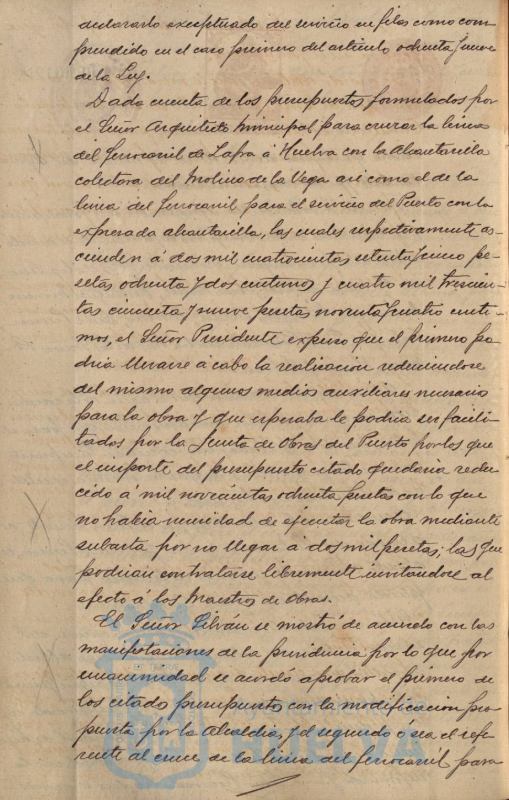 declararlo exceptuado del servicio en filas como com
prendido en el caso primero del artículo ochenta y nueve
de la Ley.
Dada cuenta de los presupuestos formulados por
el Señor Arquitecto Municipal para cruzar la linea
del ferrocarril de Zafra á Huelva con la Alcantarilla
colectora del Molino de la Vega asi como el de la
linea del ferrocarril para el servicio del Puerto con la
expresada alcantarilla, los cuales respectivamente as-
cienden á dos mil cuatrocientas setenta y cinco pe-
setas ochenta y dos centimos y cuatro mil trescien-
tas cincuenta y nueve pesetas noventa y cuatro centi-
mos, el Señor Presidente expuso que el primero po
dria llevarse á cabo la realizacion reduciendose
del mismo algunos medios auxiliares necesarios
para la obra y que esperaba le podria ser facili-
tados por la Junta de Obras del Puerto por los que
el importe del presupuesto citado quedaria redu
cido á mil novecientas ochenta pesetas con lo que
no habia necesidad de ejecutar la obra mediante
subasta por no llegar á dos mil pesetas; las que
podrian contratarse libremente invitandose al
efecto á los Maestros de Obras.
El Señor Silván se mostró de acuerdo con las
manifestaciones de la presidencia por lo que por
unanimidad se acordó aprobar el primero de
los citado presupuesto con la modificacion pro
puesta por la Alcaldia, y el segundo ó sea el refe
rente al cruce de la linea del ferrocarril para
HUELVA